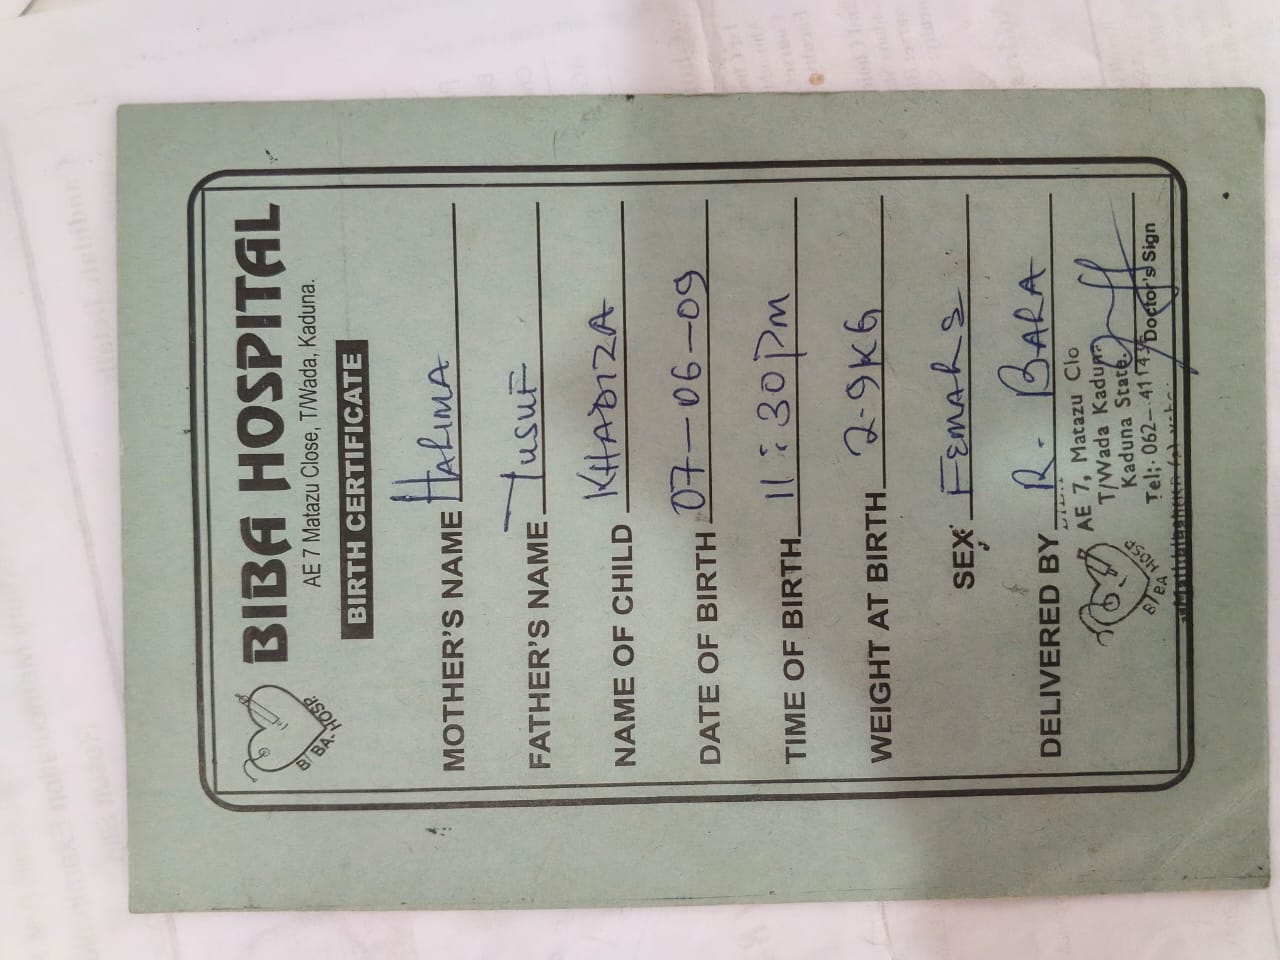 BIBA HOSPITAL
AE 7 Matazu Close, T/Wada, Kaduna.
BIRTH CERTIFICATE
BIBA. HOSP.
MOTHER'S NAME HALIMA
FATHER'S NAME YUSUF
NAME OF CHILD KHADIZA
DATE OF BIRTH 07-06-09
TIME OF BIRTH 11:30pm
WEIGHT AT BIRTH 2.9KG
SEX: FEMALE
DELIVERED BY R. BARA
AE 7, Matazu Clo
T/Wada Kadun
Kaduna State.
Tel;. 062-
Doctor's Sign
BIBA HOSP